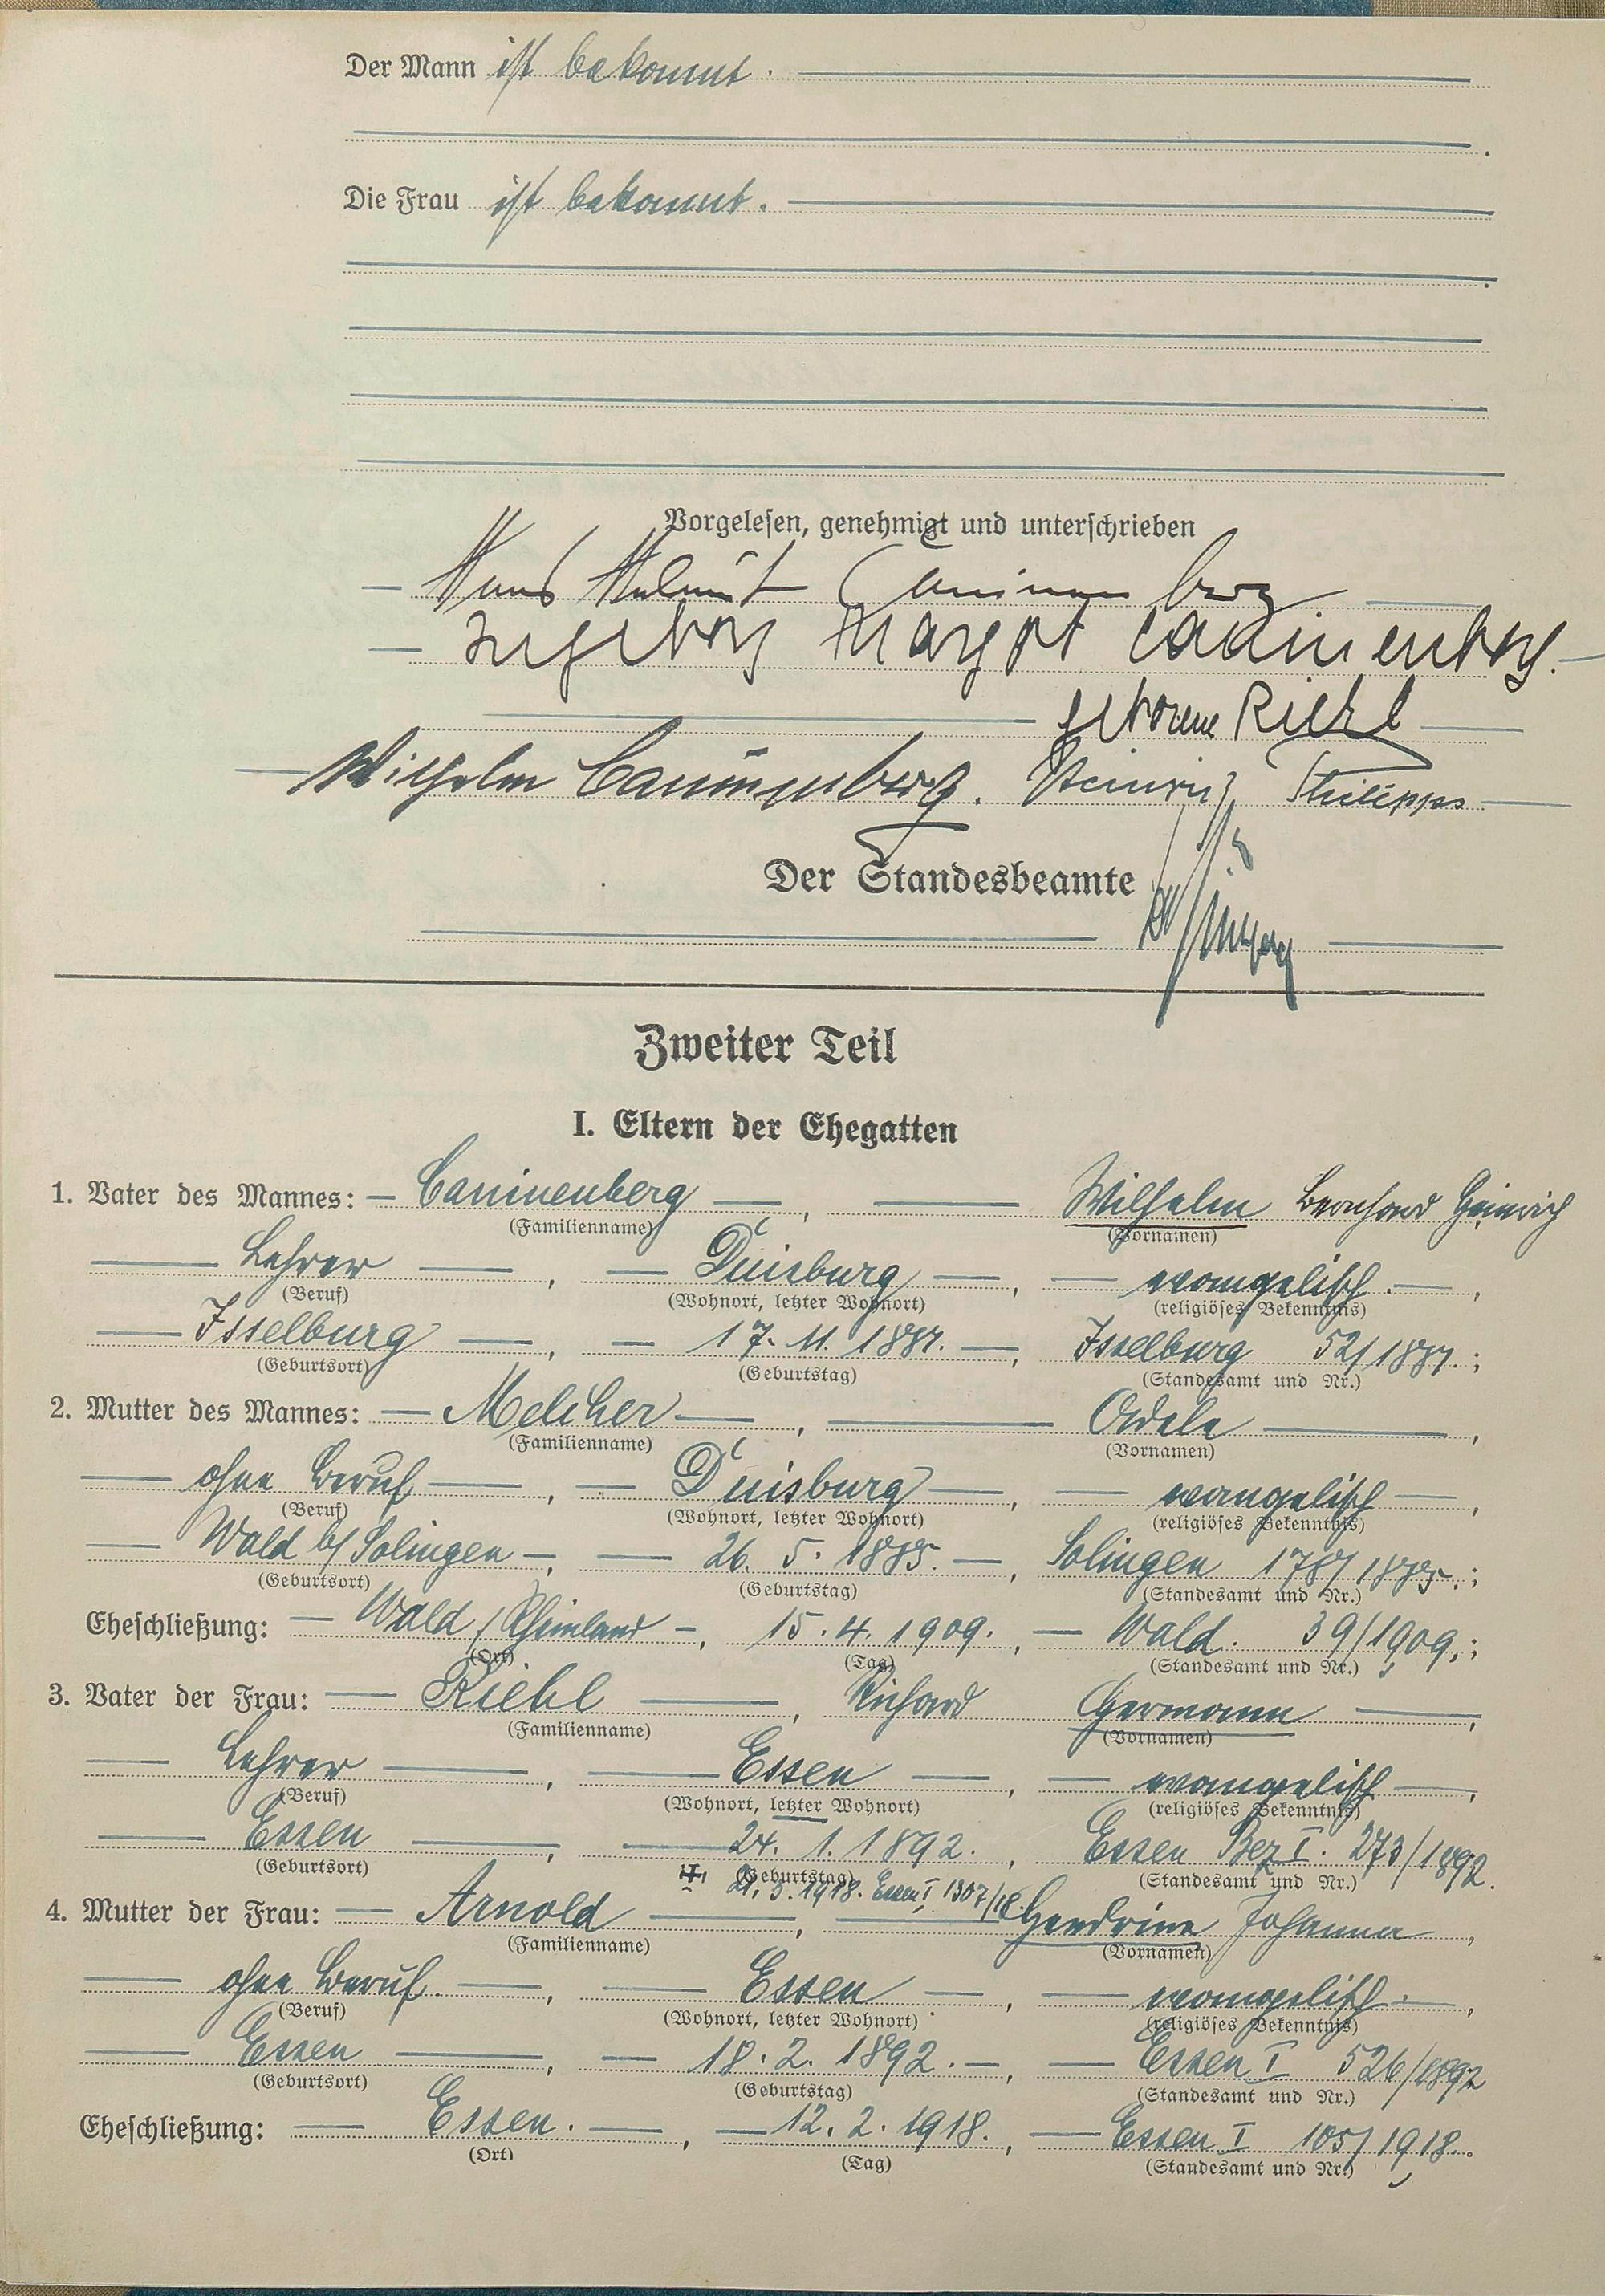 Der Mann ist bekannt.
Die Frau ist bekannt.
Vorgelesen, genehmigt und unterschrieben
Hans Helmut Caninenberg
Ingeborg Margot Caninenberg.
geborene Riehl
Wilhelm Caninenberg. Heinrich Philipps
Der Standesbeamte
Zweiter Teil
I. Eltern der Ehegatten
1. Vater des Mannes: Caninenberg, Wilhelm Bernhard Heinrich
(Familienname) (Vornamen)
Lehrer, Duisburg, evangelisch.,
(Beruf) (Wohnort, letzter Wohnort) (religiöses Bekenntnis)
Isselburg, 17. 11. 1881., Isselburg 52/1881.;
(Geburtsort) (Geburtstag) (Standesamt und Nr.)
2. Mutter des Mannes: Melcher, Adele,
(Familienname) (Vornamen)
ohne Beruf, Duisburg, evangelisch,
(Beruf) (Wohnort, letzter Wohnort) (religiöses Bekenntnis)
Wald b/ Solingen, 26. 5. 1885., Solingen 178/1885.;
(Geburtsort) (Geburtstag) (Standesamt und Nr.)
Eheschließung: Wald / Rheinland, 15. 4. 1909., Wald. 39/1909.;
(Ort) (Tag) (Standesamt und Nr.)
3. Vater der Frau: Riehl, Richard Hermann,
(Familienname) (Vornamen)
Lehrer, Essen, evangelisch,
(Beruf) (Wohnort, letzter Wohnort) (religiöses Bekenntnis)
Essen, 24. 1. 1892., Essen Bez I. 273/1892.
(Geburtsort) (Geburtstag) (Standesamt und Nr.)
21. 5. 1918. Essen I, 1307/18.
4. Mutter der Frau: Arnold, Hendrine Johanna,
(Familienname) (Vornamen)
ohne Beruf., Essen, evangelisch.,
(Beruf) (Wohnort, letzter Wohnort) (religiöses Bekenntnis)
Essen, 18. 2. 1892., Essen I 526/1892
(Geburtsort) (Geburtstag) (Standesamt und Nr.)
Eheschließung: Essen., 12. 2. 1918., Essen I 105/1918.
(Ort) (Tag) (Standesamt und Nr.)